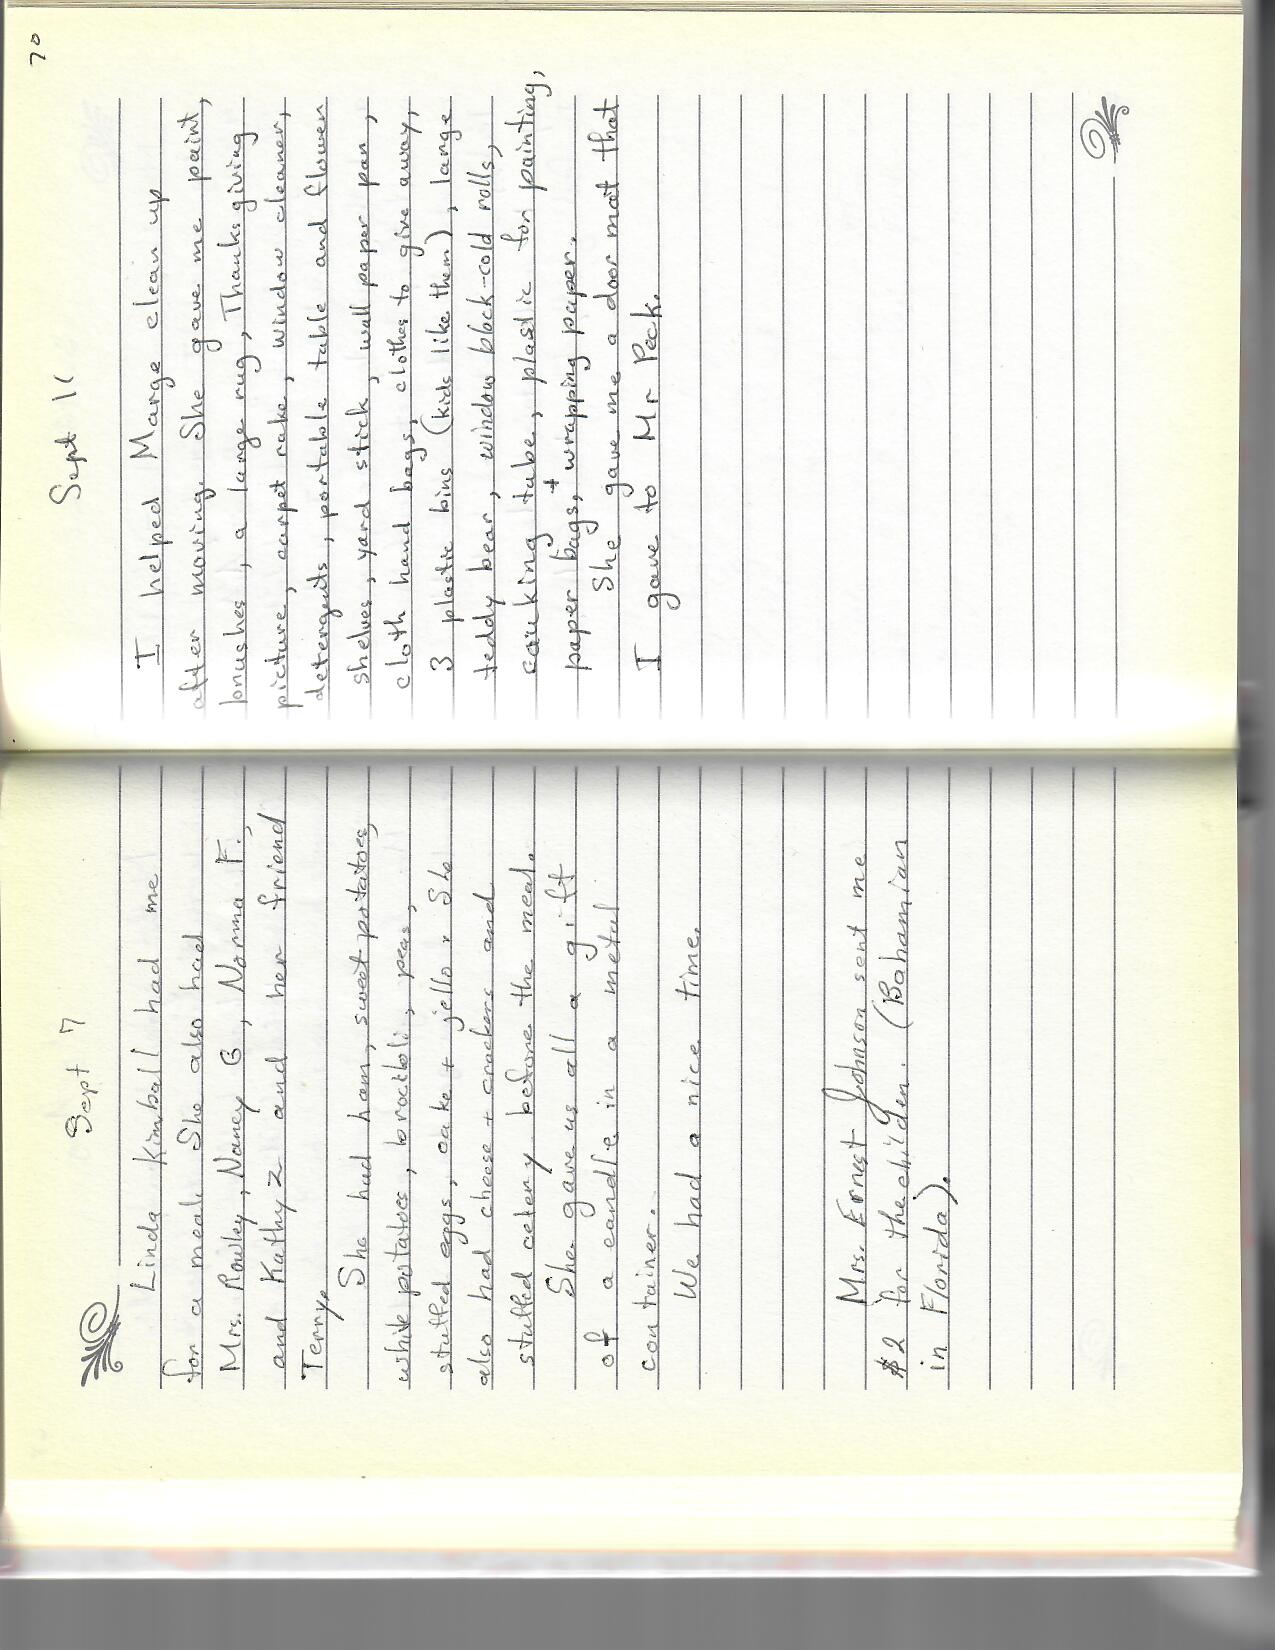 Sept 7
Linda Kimball had me
for a meal. She also had
Mrs. Rowley, Nancy G, Norma F.,
and Kathy Z and her friend
Terry.
She had ham, sweet potatoes,
white potatoes, brociboli, peas,
stuffed eggs, cake + jello. She
also had cheese + crackers and
stuffed celery before the meal.
She gave us all a gift
of a candle in a metal
container.
We had a nice time.
Mrs. Ernest Johnson sent me
$2 for the children. (Bahamian
in Florida).
70
Sept 11
I helped Marge clean up
after moving. She gave me paint,
brushes, a large rug, Thanksgiving
picture, carpet rake, window cleaner,
detergents, portable table and flower
shelves, yard stick, wall paper pan,
cloth hand bags, clothes to give away,
3 plastic bins (kids like them), large
teddy bear, window block-cold rolls,
caulking tube, plastic for painting,
paper bags, + wrapping paper.
She gave me a door mat that
I gave to Mr Peck.